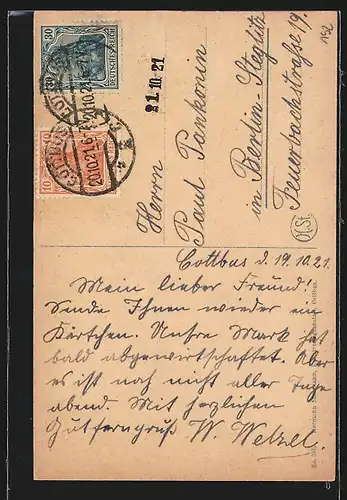 152
30
DEUTSCHES REICH
10
COTTBUS
20.10.21.6
21.10.21
Herrn
Paul Pankonin
in Berlin-Steglitz
Feuerbachstrasse 19.
Cottbus d. 19.10.21.
Mein lieber Freund!
Sende Ihnen wieder ein
Kärtchen. Unsre Mark hat
bald abgewirtschaftet. Aber
es ist noch nicht aller Tage
abend. Mit herzlichen
Gutferngruß W. Wetzel.